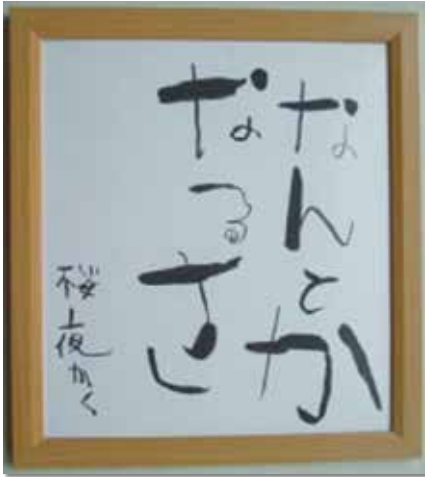 なんとか
なるさ
桜上俊かく